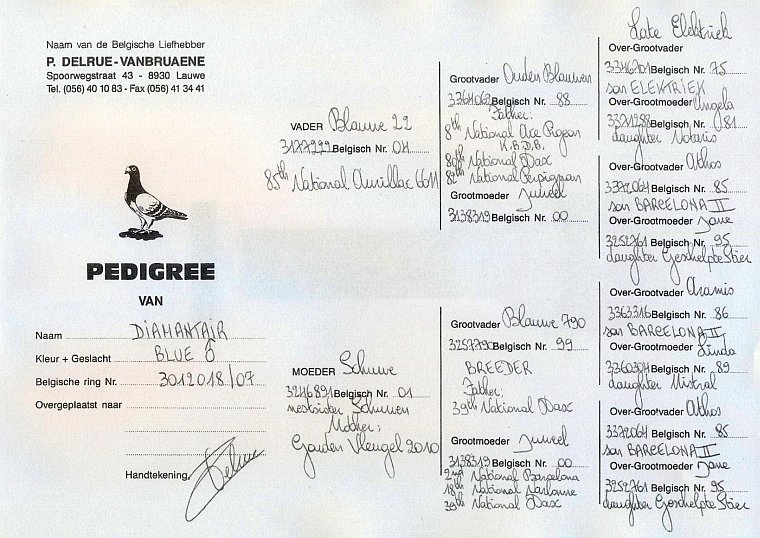 Naam van de Belgische Liefhebber
P. DELRUE-VANBRUAENE
Spoorwegstraat 43 - 8930 Lauwe
Tel. (056) 40 10 83 - Fax (056) 41 34 41
PEDIGREE
VAN
Naam DIAMANTAIR
Kleur + Geslacht BLUE
Belgische ring Nr. 3012018/07
Overgeplaatst naar
Handtekening,
VADER Blauwe 22
3177222 Belgisch Nr. 04
85th National Aurillac 6611
MOEDER Schuwe
3246891 Belgisch Nr. 01
nestsister Schuwen
Mother:
Gouden Vleugel 2010
Grootvader Ouden Blauwen
3364062 Belgisch Nr. 88
Father:
8th National Ace Pigeon
K.B.D.B.
80th National Dax
82th National Perpignan
Grootmoeder Juweel
3138319 Belgisch Nr. 00
Grootvader Blauwe 790
3257790 Belgisch Nr. 99
BREEDER
Father:
39th National Dax
Grootmoeder Juweel
3138319 Belgisch Nr. 00
2nd National Barcelona
18th National Narbonne
39th National Dax
Late Elektriek
Over-Grootvader
3346701 Belgisch Nr. 75
son ELEKTRIEK
Over-Grootmoeder Angela
3371288 Belgisch Nr. 81
daughter Notaris
Over-Grootvader Athos
3372064 Belgisch Nr. 85
son BARCELONA II
Over-Grootmoeder Jane
3252761 Belgisch Nr. 95
daughter Geschelpte Stier
Over-Grootvader Aramis
3363316 Belgisch Nr. 86
son BARCELONA II
Over-Grootmoeder Linda
3360304 Belgisch Nr. 89
daughter Mistral
Over-Grootvader Athos
3372064 Belgisch Nr. 85
son BARCELONA II
Over-Grootmoeder Jane
3252761 Belgisch Nr. 95
daughter Geschelpte Stier